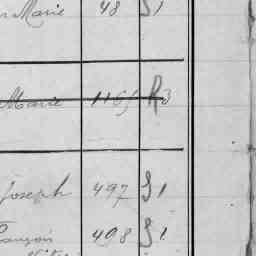 Marie 48 S 1
Marie 1165 R 3
Joseph 497 S 1
François 498 S 1